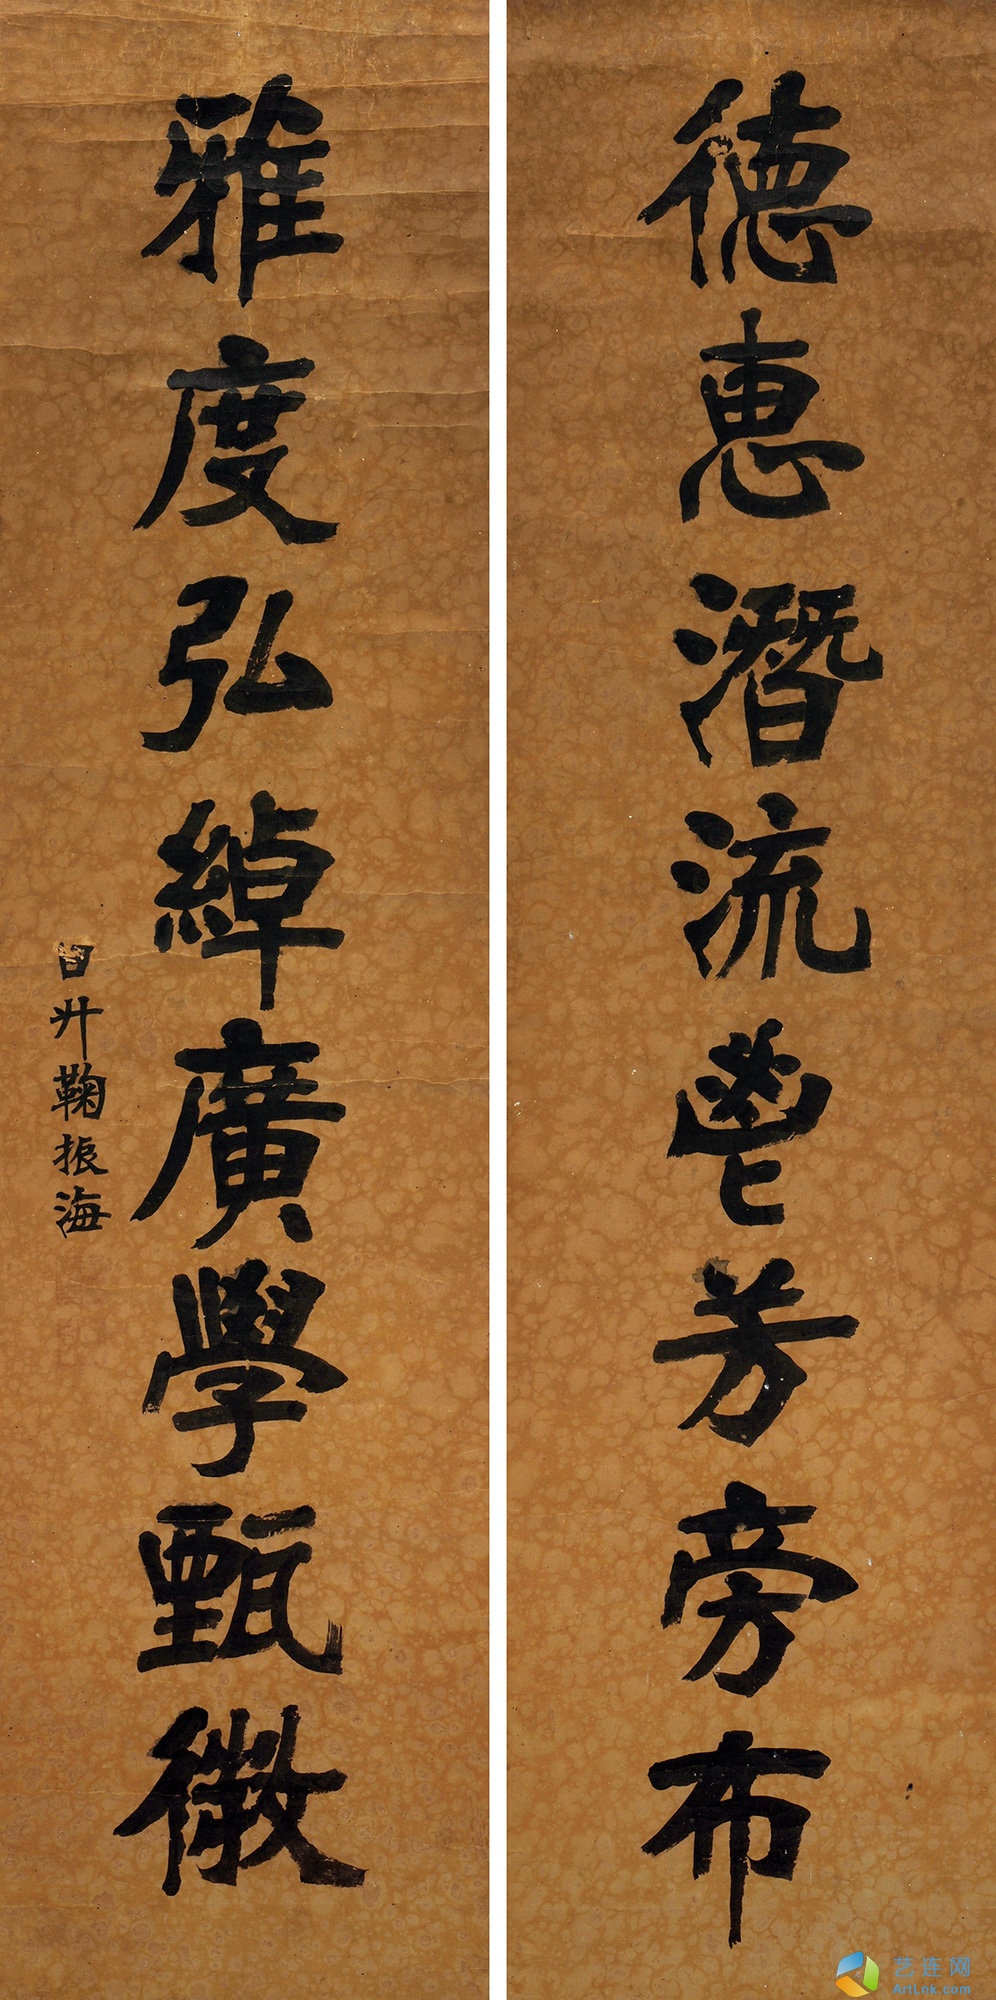 德惠潛流鬯芳旁布
雅度弘綽廣學甄微
日升鞠振海
艺连网
ArtLnk.com